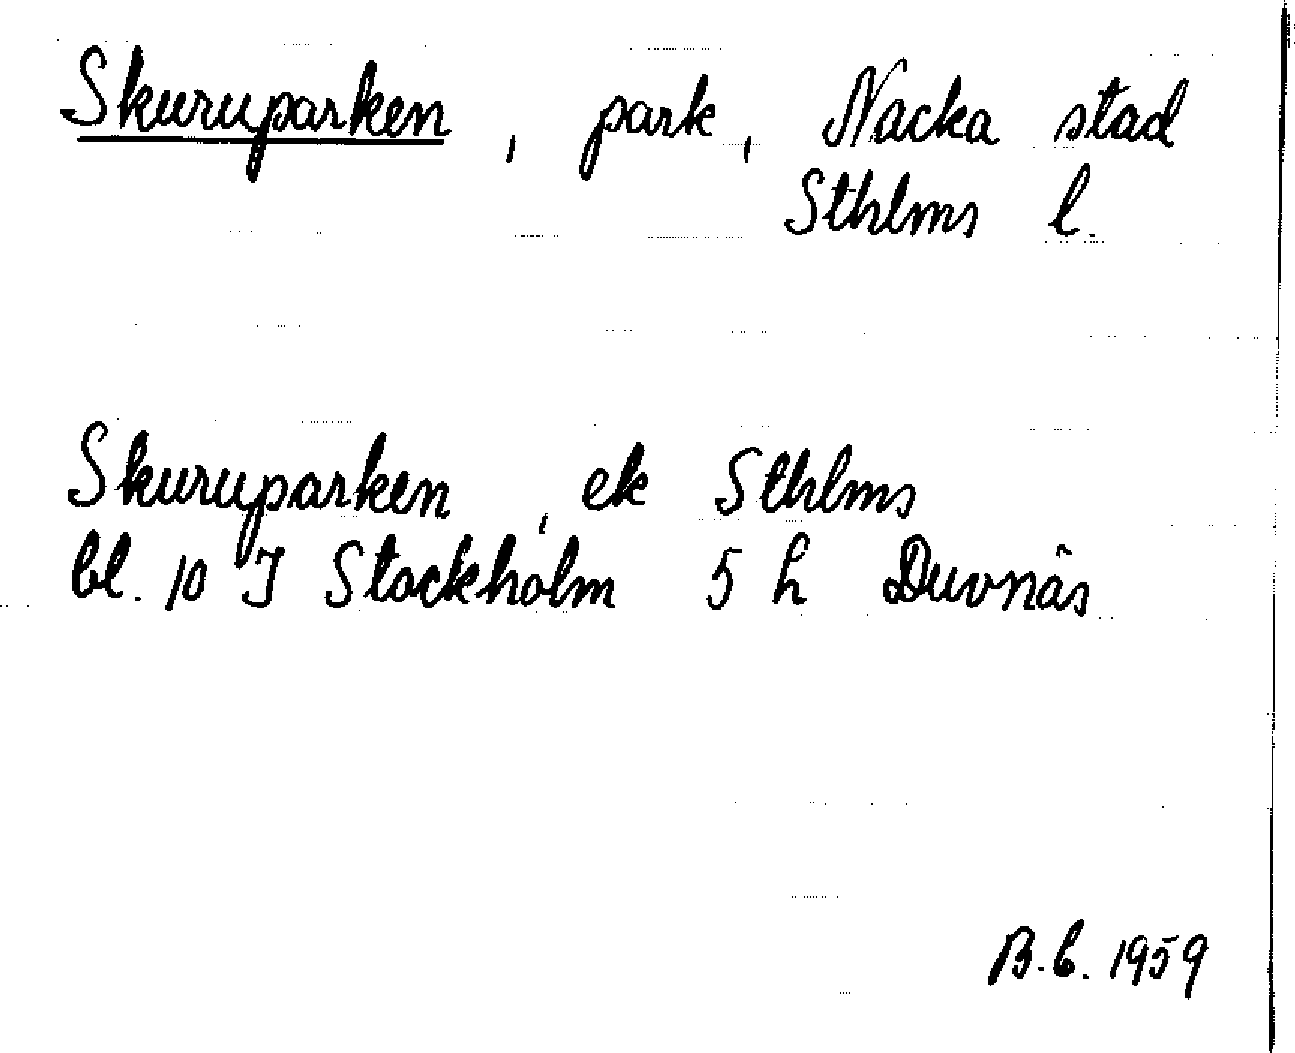 Skuruparken, park, Nacka stad
Sthlms l.
Skuruparken, ek Sthlms
bl. 10 I Stockholm 5 h Duvnäs
B.b. 1959